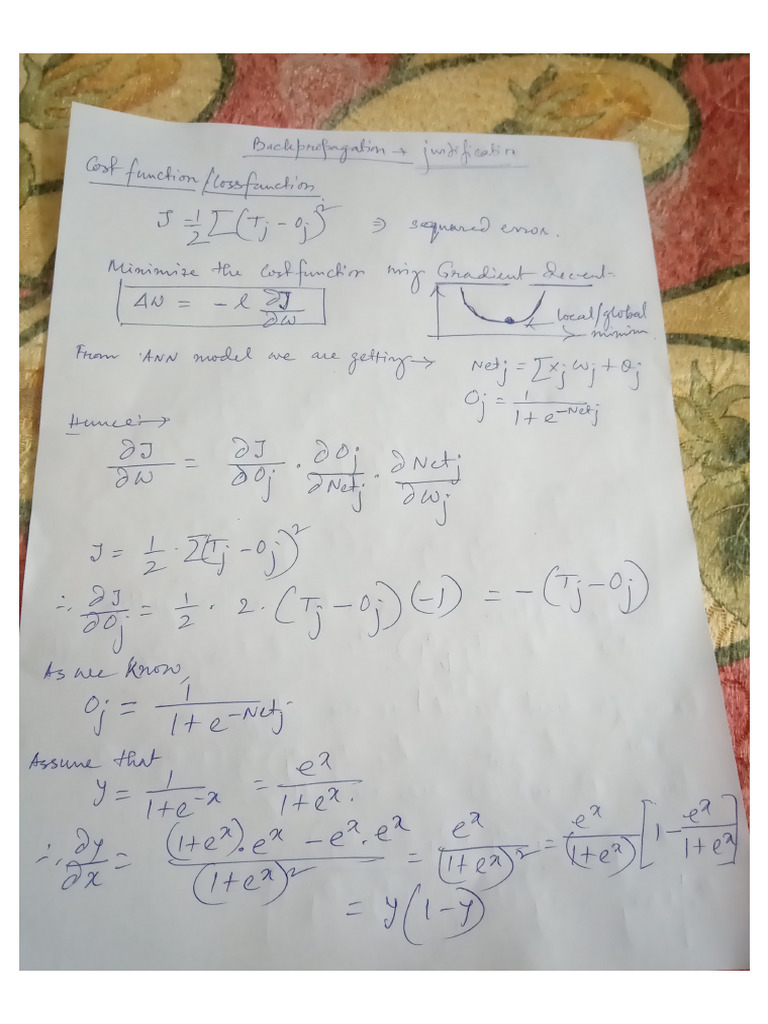 Backpropagation → justification
Cost function/Loss function
J = 1/2 Σ(Tj - Oj)² ⇒ squared error.
Minimize the cost function using Gradient descent.
ΔW = -l ∂J/∂W
local/global
minim
From ANN model we are getting → Netj = Σxjwj + θj
Oj = 1/(1+e^-Netj)
Hence: →
∂J/∂W = ∂J/∂Oj · ∂Oj/∂Netj · ∂Netj/∂Wj
J = 1/2 · Σ(Tj - Oj)²
∴ ∂J/∂Oj = 1/2 · 2 · (Tj - Oj)(-1) = -(Tj - Oj)
As we know,
Oj = 1/(1+e^-Netj)
Assume that
y = 1/(1+e^-x) = e^x/(1+e^x).
∴ ∂y/∂x = ((1+e^x)·e^x - e^x·e^x)/(1+e^x)² = e^x/(1+e^x)² = e^x/(1+e^x) [1 - e^x/(1+e^x)]
= y(1-y)